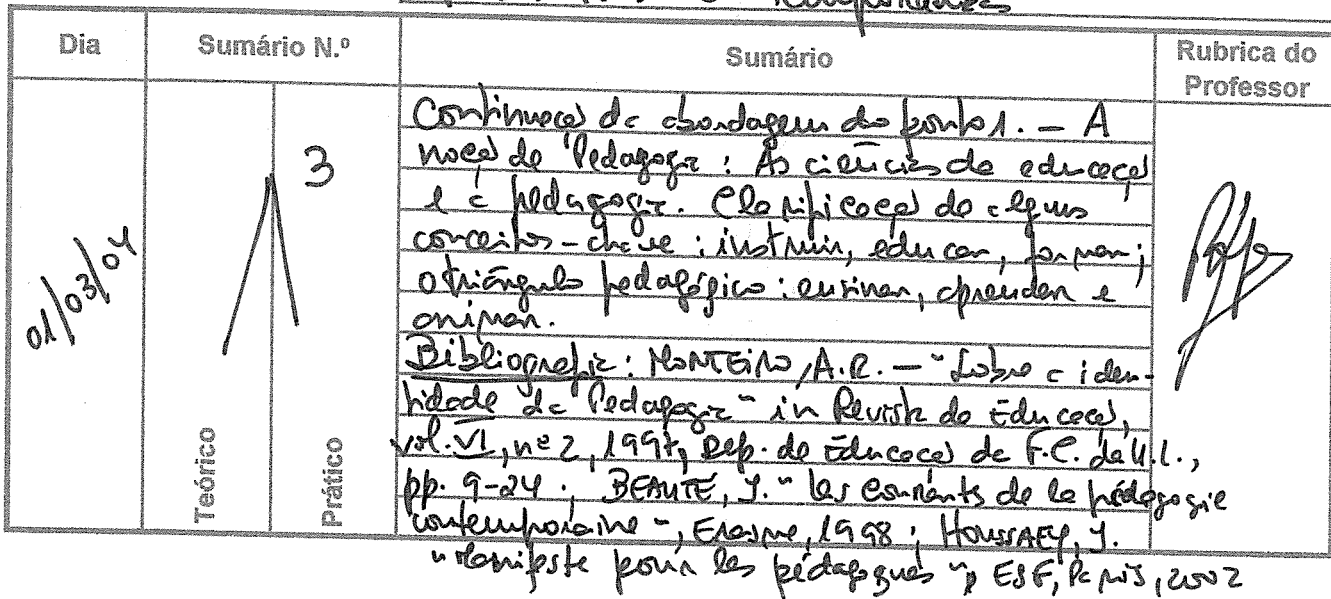 Dia
Sumário N.º
Sumário
Rubrica do
Professor
01/03/04
3
Teórico
Prático
Continuação da abordagem do ponto 1. – A
noção de Pedagogia: As ciências da educação
e a pedagogia. Clarificação de alguns
conceitos-chave: instruir, educar, formar;
o triângulo pedagógico: ensinar, aprender e
animar.
Bibliografia: MONTEIRO, A.R. – "Sobre a iden-
tidade da Pedagogia" in Revista de Educação,
vol. VI, nº 2, 1997, Dep. de Educação da F.C. da U.L.,
pp. 9-24; BEAUTÉ, J. "Les courants de la pédagogie
contemporaine", Erasme, 1998; HOUSSAEY, J.
"Manifeste pour les pédagogues", ESF, Paris, 2002